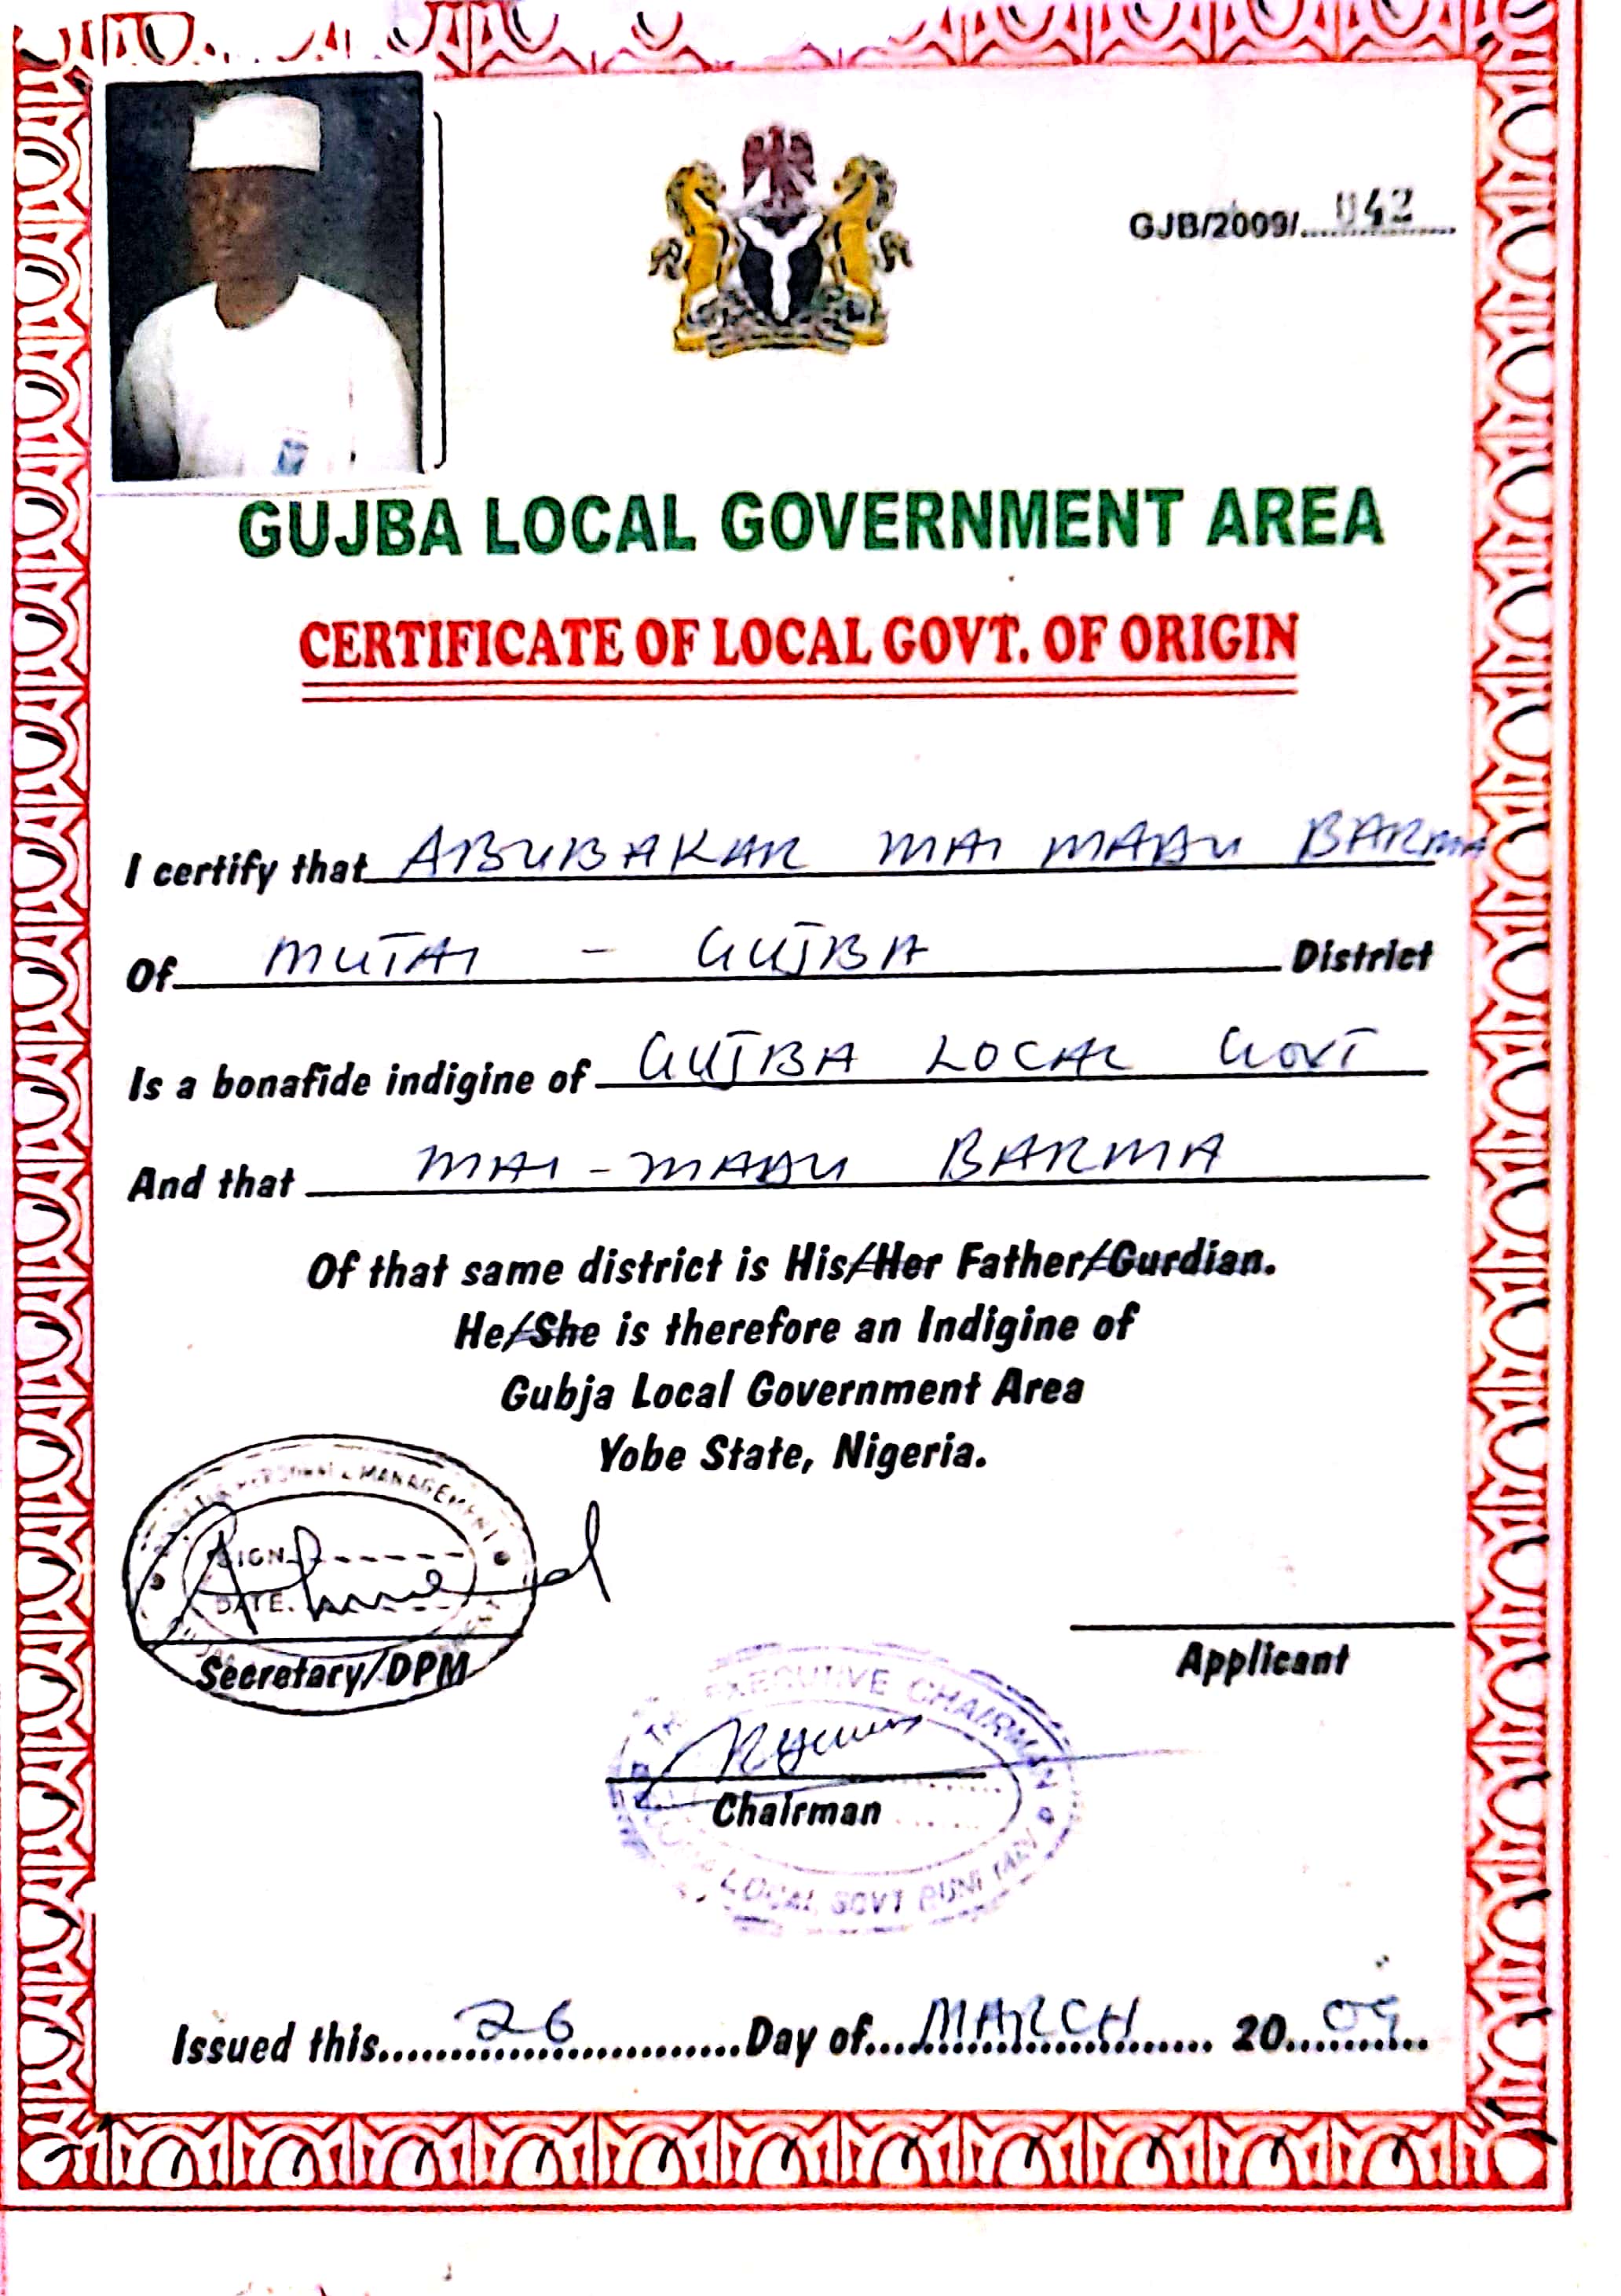 GJB/2009/....042....
GUJBA LOCAL GOVERNMENT AREA
CERTIFICATE OF LOCAL GOVT. OF ORIGIN
I certify that ABUBAKAR MAI MADU BARMA
Of MUTAI - GUJBA District
Is a bonafide indigine of GUJBA LOCAL GOVT
And that MAI-MADU BARMA
Of that same district is His/Her Father/Gurdian.
He/She is therefore an Indigine of
Gubja Local Government Area
Yobe State, Nigeria.
PERSONNEL MANAGEMENT
SIGN
DATE
Secretary/DPM
Applicant
THE EXECUTIVE CHAIRMAN
Chairman
LOCAL GOVT
Issued this....26....Day of....MARCH.... 20..09..